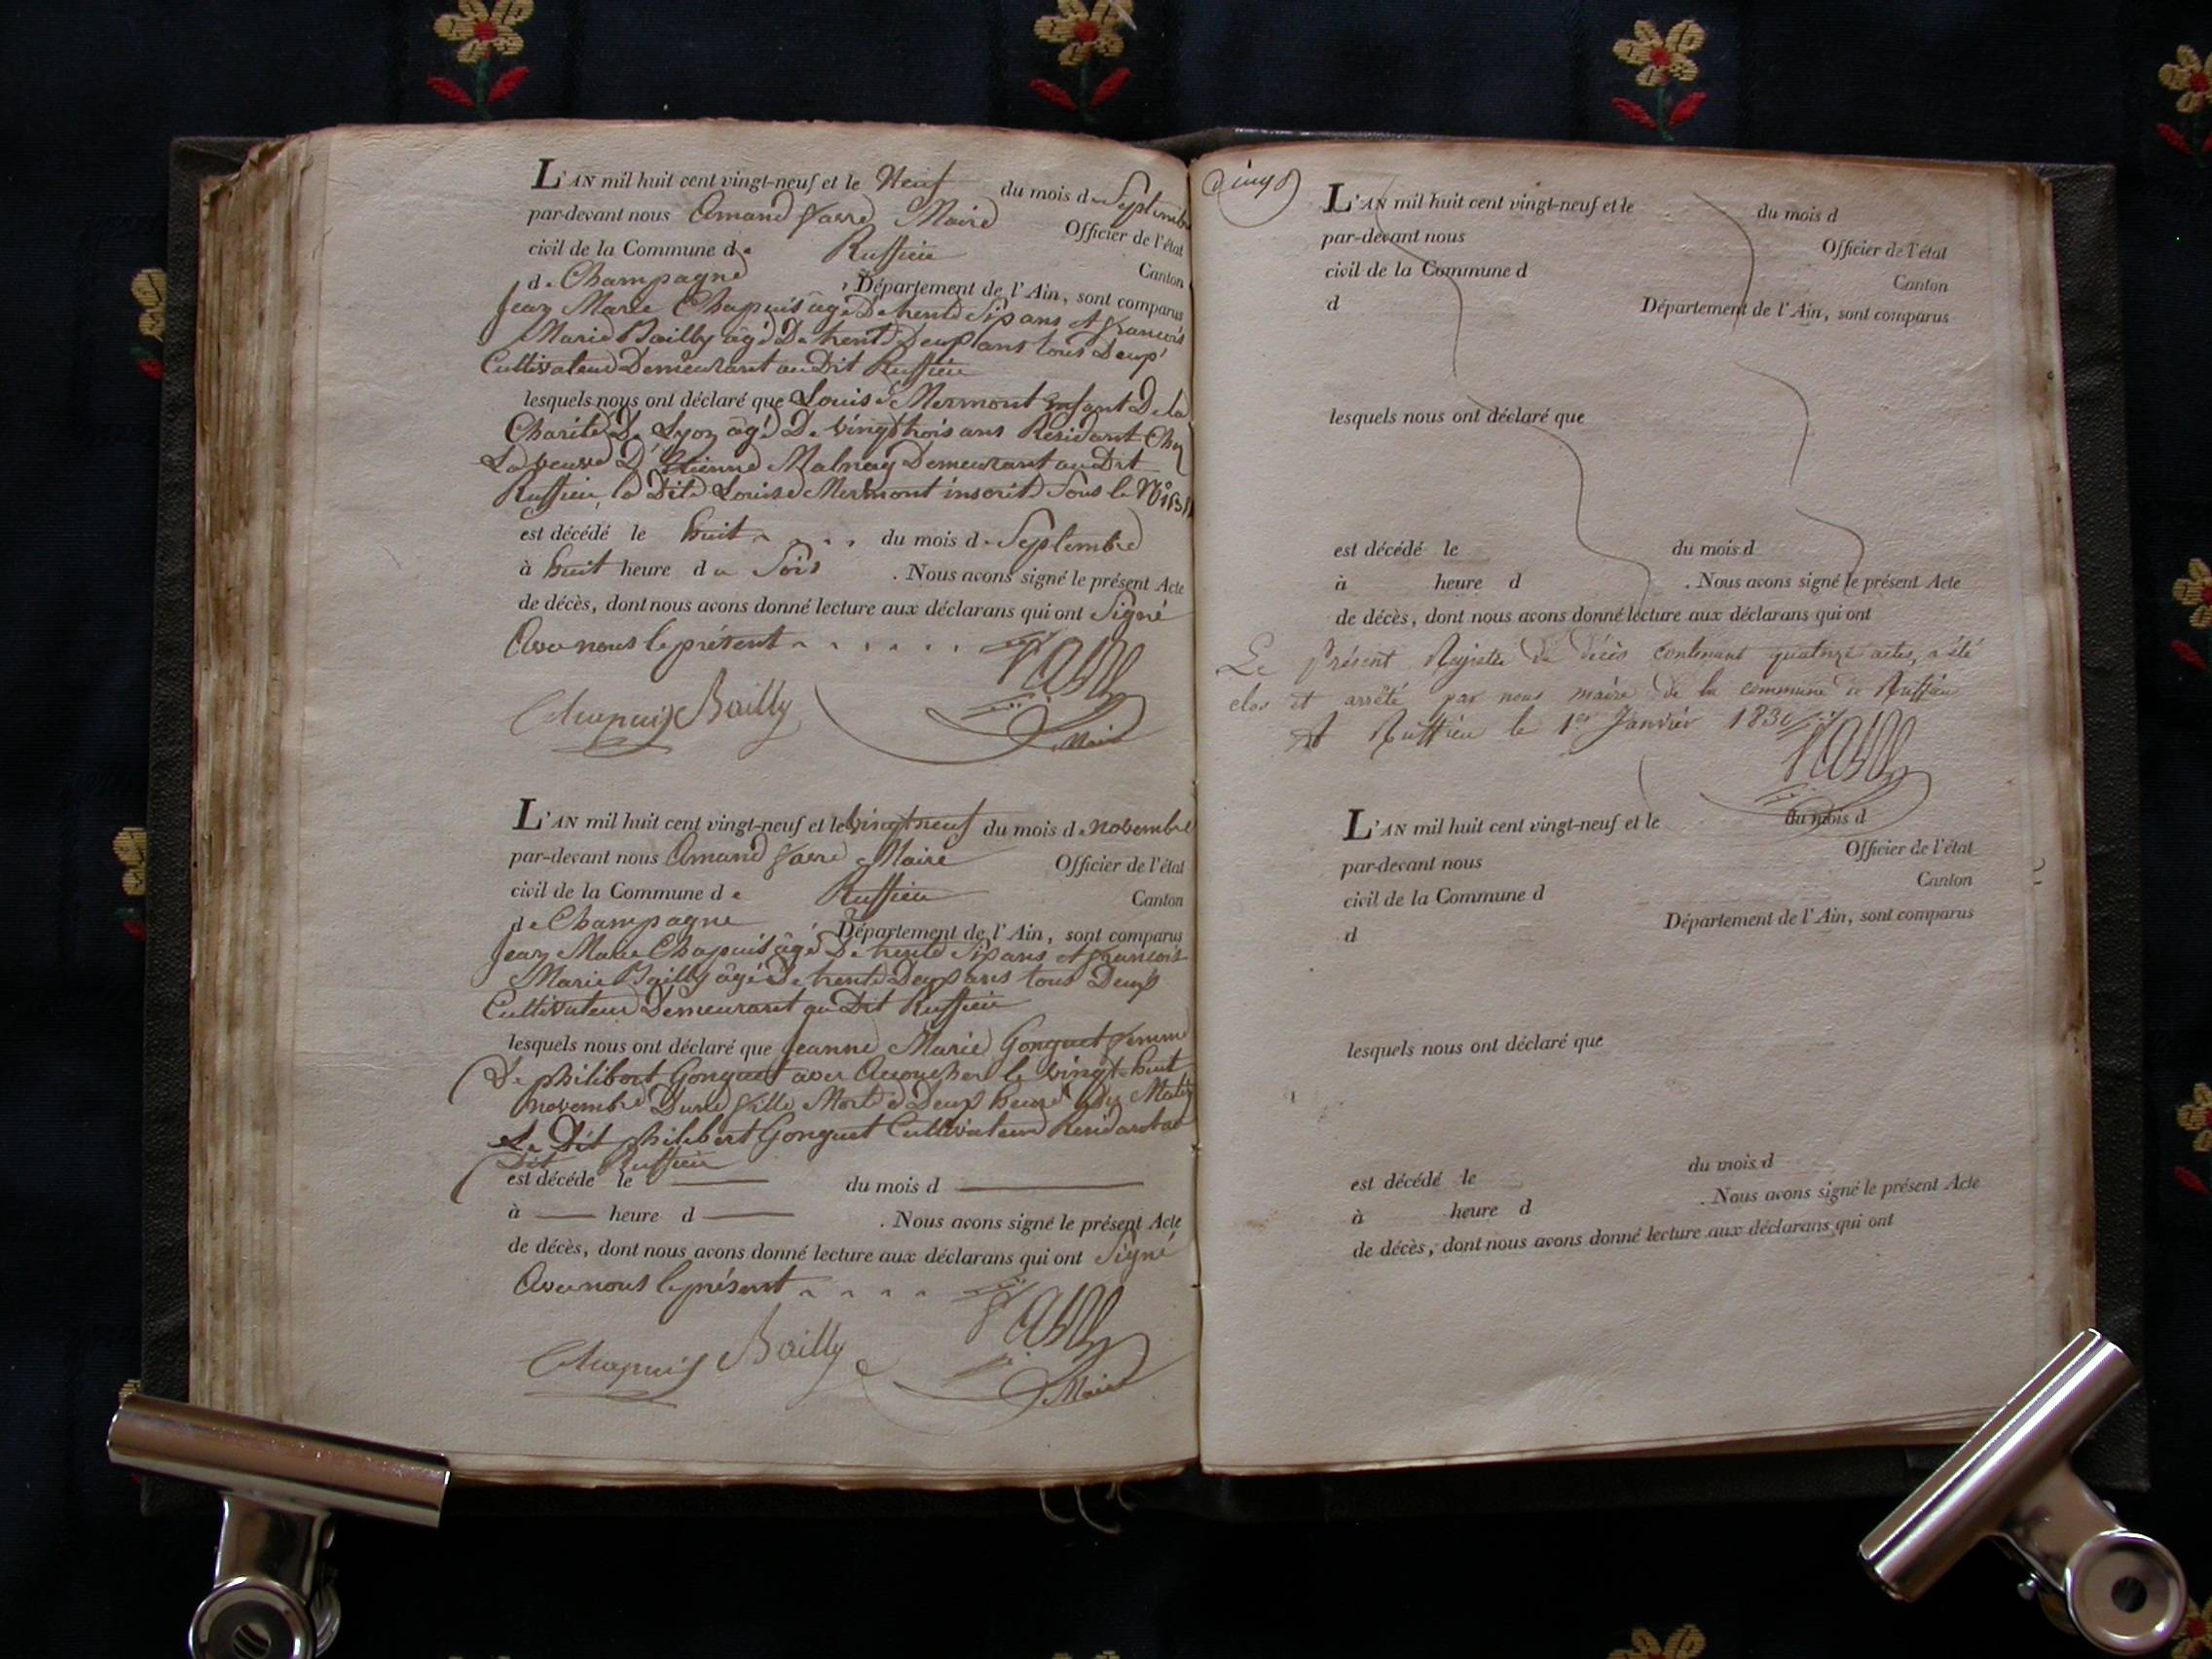 L'AN mil huit cent vingt-neuf et le Neuf du mois de Septembre
par-devant nous Amand favre Maire Officier de l'état
civil de la Commune de Ruffieu Canton
de Champagne, Département de l'Ain, sont comparus
Jean Marie Chapuis âgé De trente Six ans et francois
Marie Bailly âgé De trente Deux ans tous Deux
Cultivateur Demeurant au Dit Ruffieu
lesquels nous ont déclaré que Louise Mermont enfant De la
Charité De Lyon âgé De vingt trois ans Residant Chez
La veuve D'Etienne Malnay Demeurant au Dit
Ruffieu, la Dite Louise Mermont inscrite Sous le N°
est décédé le huit du mois de Septembre
à huit heure du Soir. Nous avons signé le présent Acte
de décès, dont nous avons donné lecture aux déclarans qui ont Signé
Avec nous le présent
Chapuis Bailly favre
Maire
L'AN mil huit cent vingt-neuf et le vingt neuf du mois de novembre
par-devant nous Amand favre Maire Officier de l'état
civil de la Commune de Ruffieu Canton
de Champagne, Département de l'Ain, sont comparus
Jean Marie Chapuis âgé De trente Six ans et francois
Marie Bailly âgé De trente Deux ans tous Deux
Cultivateur Demeurant au Dit Ruffieu
lesquels nous ont déclaré que Jeanne Marie Gonguet femme
De philibert Gonguet avoir Accoucher le vingt-huit
novembre D'une fille Morte a Deux heure du Matin
Le Dit philibert Gonguet Cultivateur Residant au
Dit Ruffieu
est décédé le du mois d
à heure d . Nous avons signé le présent Acte
de décès, dont nous avons donné lecture aux déclarans qui ont Signé
Avec nous le présent
Chapuis Bailly favre
Maire
L'AN mil huit cent vingt-neuf et le du mois d
par-devant nous Officier de l'état
civil de la Commune d Canton
d Département de l'Ain, sont comparus
lesquels nous ont déclaré que
est décédé le du mois d
à heure d . Nous avons signé le présent Acte
de décès, dont nous avons donné lecture aux déclarans qui ont
Le présent Registre de décès contenant quatorze actes, a été
clos et arrêté par nous maire de la commune de Ruffieu
A Ruffieu le 1er Janvier 1830
favre
L'AN mil huit cent vingt-neuf et le du mois d
par-devant nous Officier de l'état
civil de la Commune d Canton
d Département de l'Ain, sont comparus
lesquels nous ont déclaré que
est décédé le du mois d
à heure d . Nous avons signé le présent Acte
de décès, dont nous avons donné lecture aux déclarans qui ont